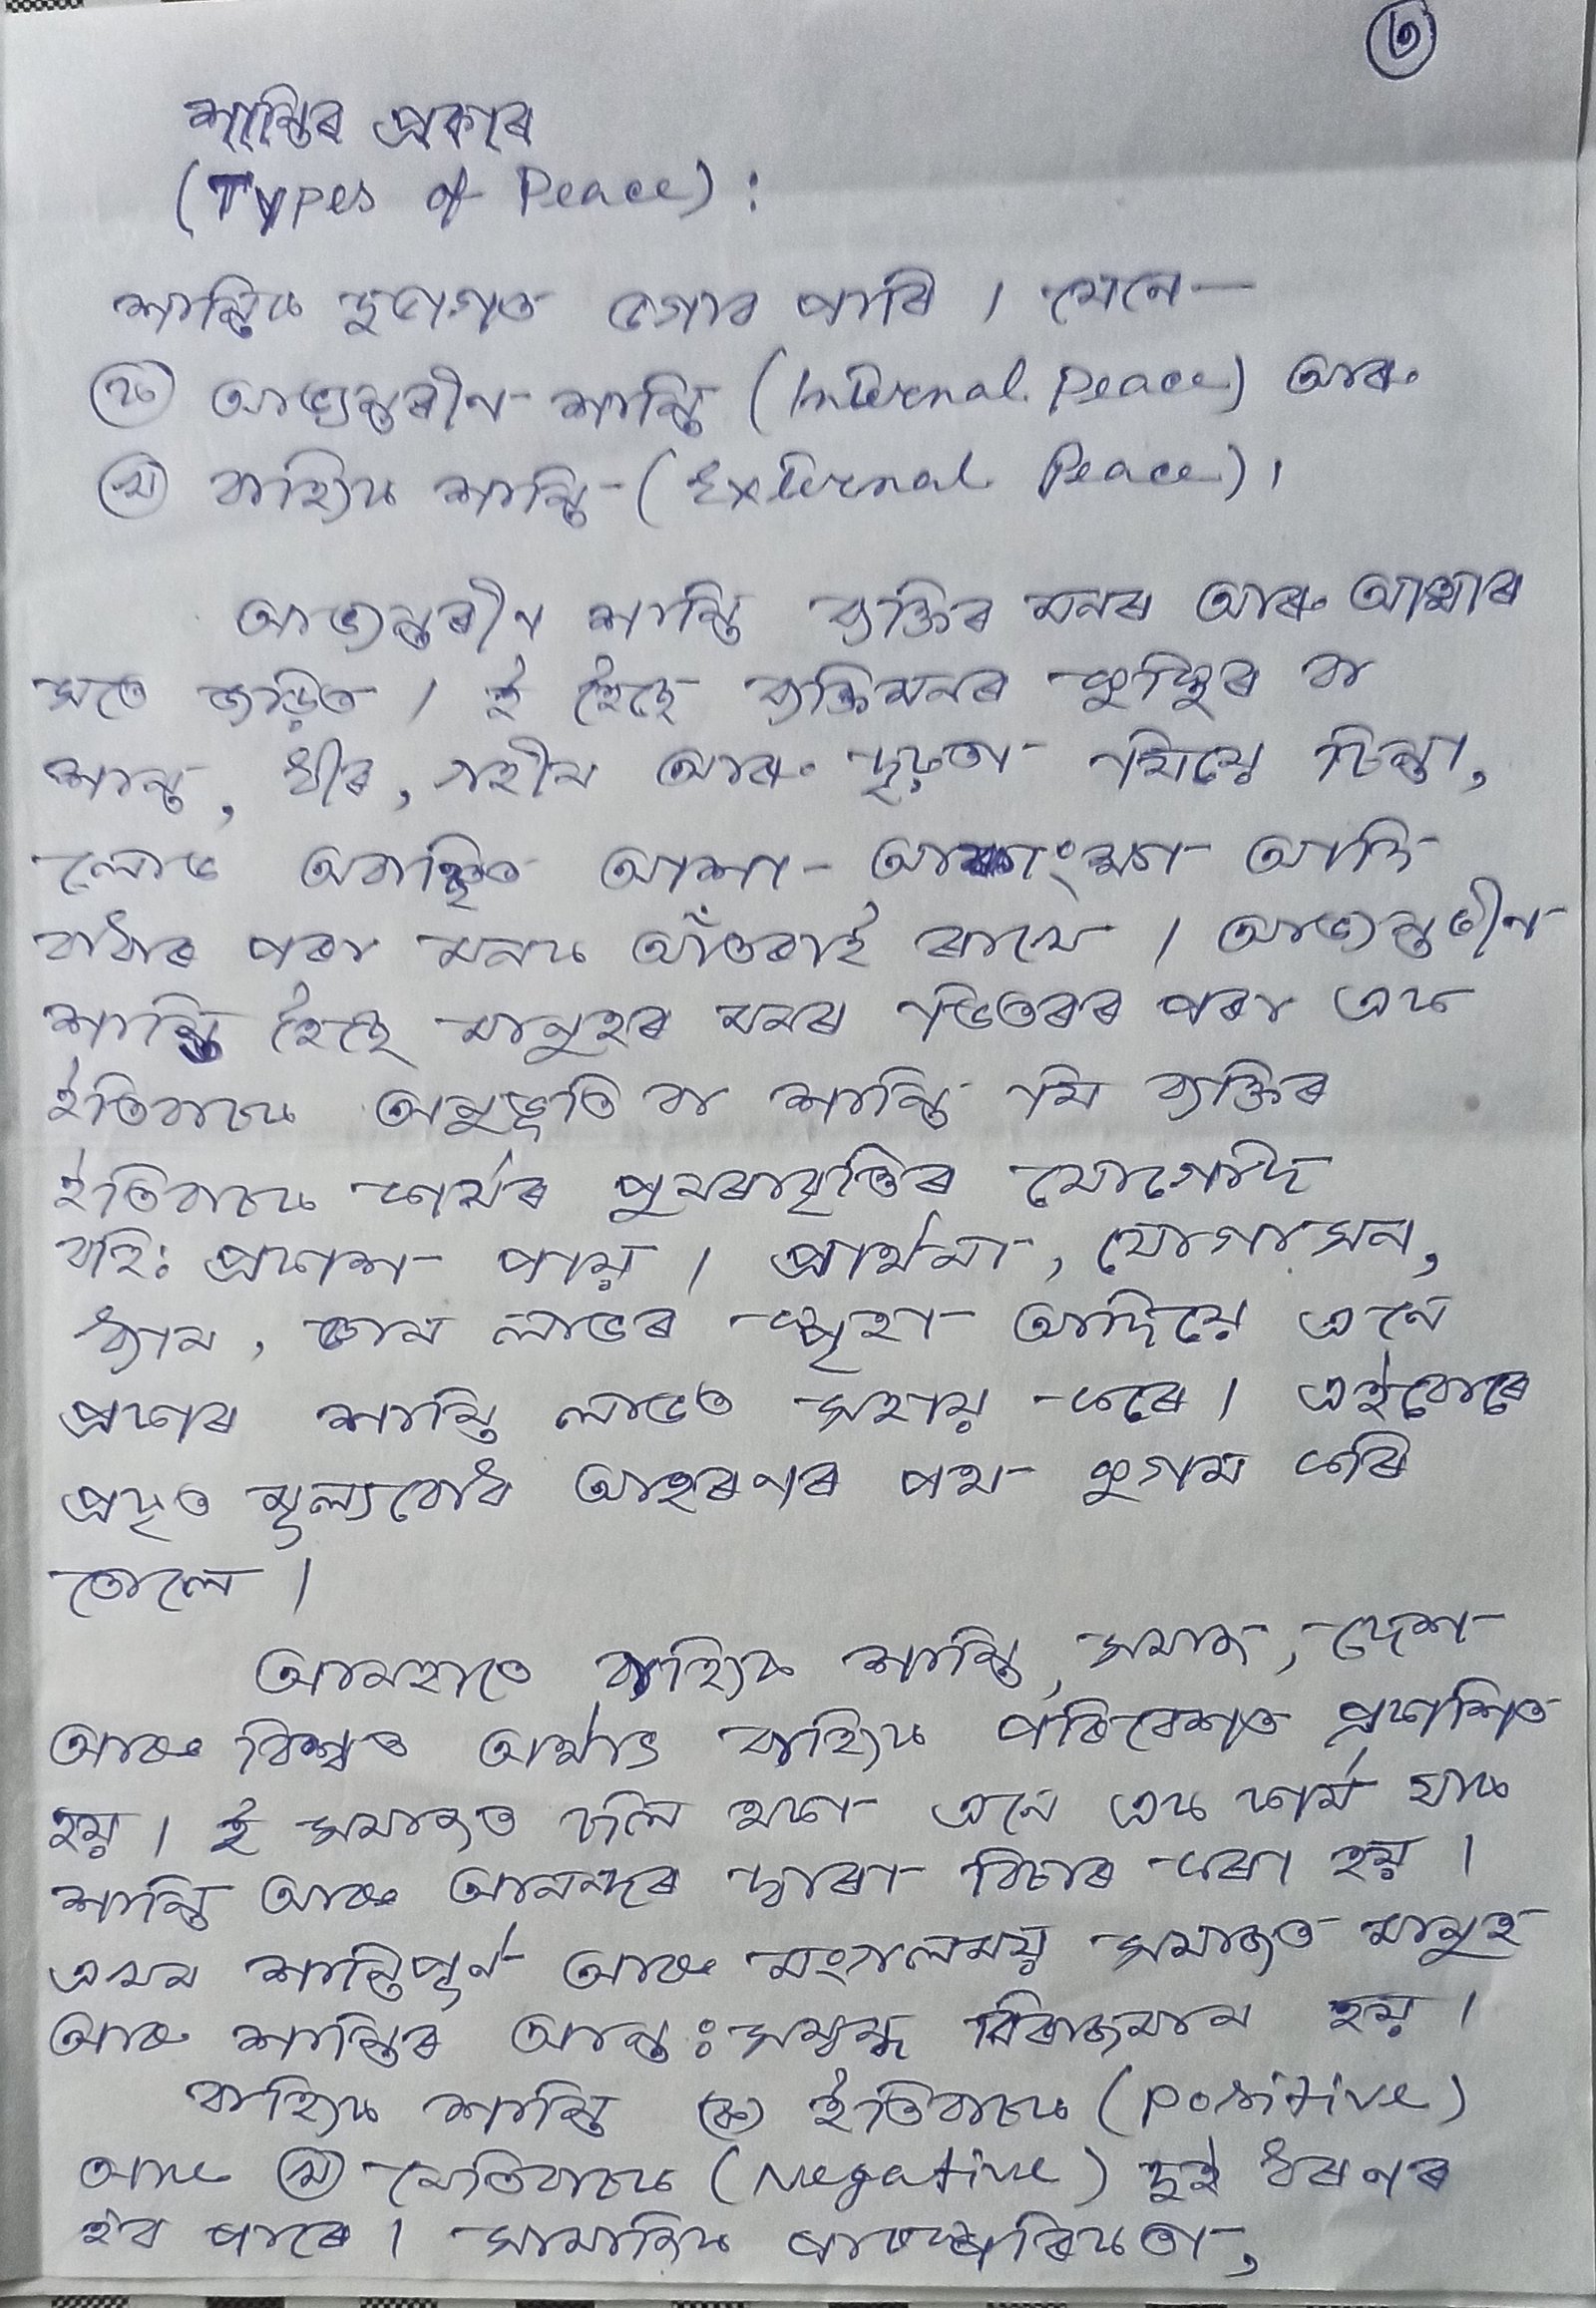 ৩
শান্তিৰ প্ৰকাৰ
(Types of Peace) :
শান্তিক দুভাগত ভগাব পাৰি । যেনে—
(ক) আভ্যন্তৰীণ শান্তি (Internal Peace) আৰু
(খ) বাহ্যিক শান্তি - (External Peace) ।
আভ্যন্তৰীণ শান্তি ব্যক্তিৰ মনৰ আৰু আত্মাৰ
সতে জড়িত । ই হৈছে ব্যক্তিমনৰ সুস্থিৰ বা
শান্ত, ধীৰ, গহীন আৰু দৃঢ়তা যিয়ে চিন্তা,
লোভ অবাঞ্ছিত আশা - আকাংক্ষা আদি
বাধাৰ পৰা মনক আঁতৰাই ৰাখে । আভ্যন্তৰীণ
শান্তি হৈছে মানুহৰ মনৰ ভিতৰৰ পৰা এক
ইতিবাচক অনুভূতি বা শান্তি যি ব্যক্তিৰ
ইতিবাচক কাৰ্যৰ পুনৰাবৃত্তিৰ যোগেদি
বহিঃ প্ৰকাশ পায় । প্ৰাৰ্থনা, যোগাসন,
ধ্যান, জ্ঞান লাভৰ স্পৃহা আদিয়ে এনে
প্ৰকাৰ শান্তি লাভত সহায় কৰে । এইবোৰে
প্ৰকৃত মূল্যবোধ আহৰণৰ পথ সুগম কৰি
তোলে ।
আনহাতে বাহ্যিক শান্তি, সমাজ, দেশ
আৰু বিশ্বত অৰ্থাৎ বাহ্যিক পৰিবেশত প্ৰকাশিত
হয় । ই সমাজত চলি থকা এনে এক কাৰ্য যাক
শান্তি আৰু আনন্দৰ দ্বাৰা বিচাৰ কৰা হয় ।
এখন শান্তিপূৰ্ণ আৰু মংগলময় সমাজত মানুহ
আৰু শান্তিৰ আন্তঃসম্বন্ধ বিৰাজমান হয় ।
বাহ্যিক শান্তি (ক) ইতিবাচক (positive)
আৰু (খ) নেতিবাচক (Negative) দুই ধৰণৰ
হ'ব পাৰে । সামাজিক পাৰস্পৰিকতা,